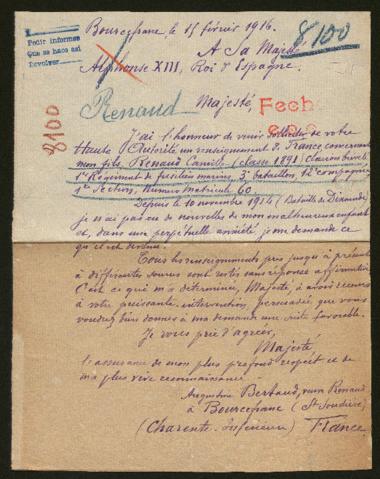 Bourcefranc, le 15 février 1916.
Pedir informes
que se hace así
8100
A Sa Majesté
Alphonse XIII, Roi d'Espagne.
Renaud
Majesté,
Fech
8100
J'ai l'honneur de venir solliciter de votre
Haute Autorité un renseignement concernant
mon fils, Renaud Camille (classe 1891) clairon breveté
1er Régiment de fusiliers marins, 3e bataillon, 12e compagnie
1re Section, Numéro matricule 60
Depuis le 10 novembre 1914 (Bataille de Dixmude)
je n'ai pas eu de nouvelles de mon malheureux enfant
et, dans une perpétuelle anxiété je me demande ce
qu'il est devenu.
Tous les renseignements pris jusqu'à présent
à différentes sources sont restés sans réponse affirmative
C'est ce qui m'a déterminée, Majesté, à avoir recours
à votre puissante intervention, persuadée que vous
voudrez bien donner à ma demande une suite favorable.
Je vous prie d'agréer,
Majesté
l'assurance de mon plus profond respect et de
ma plus vive reconnaissance
Augustine Bertaud, veuve Renaud
à Bourcefranc
(Charente Inférieure) France